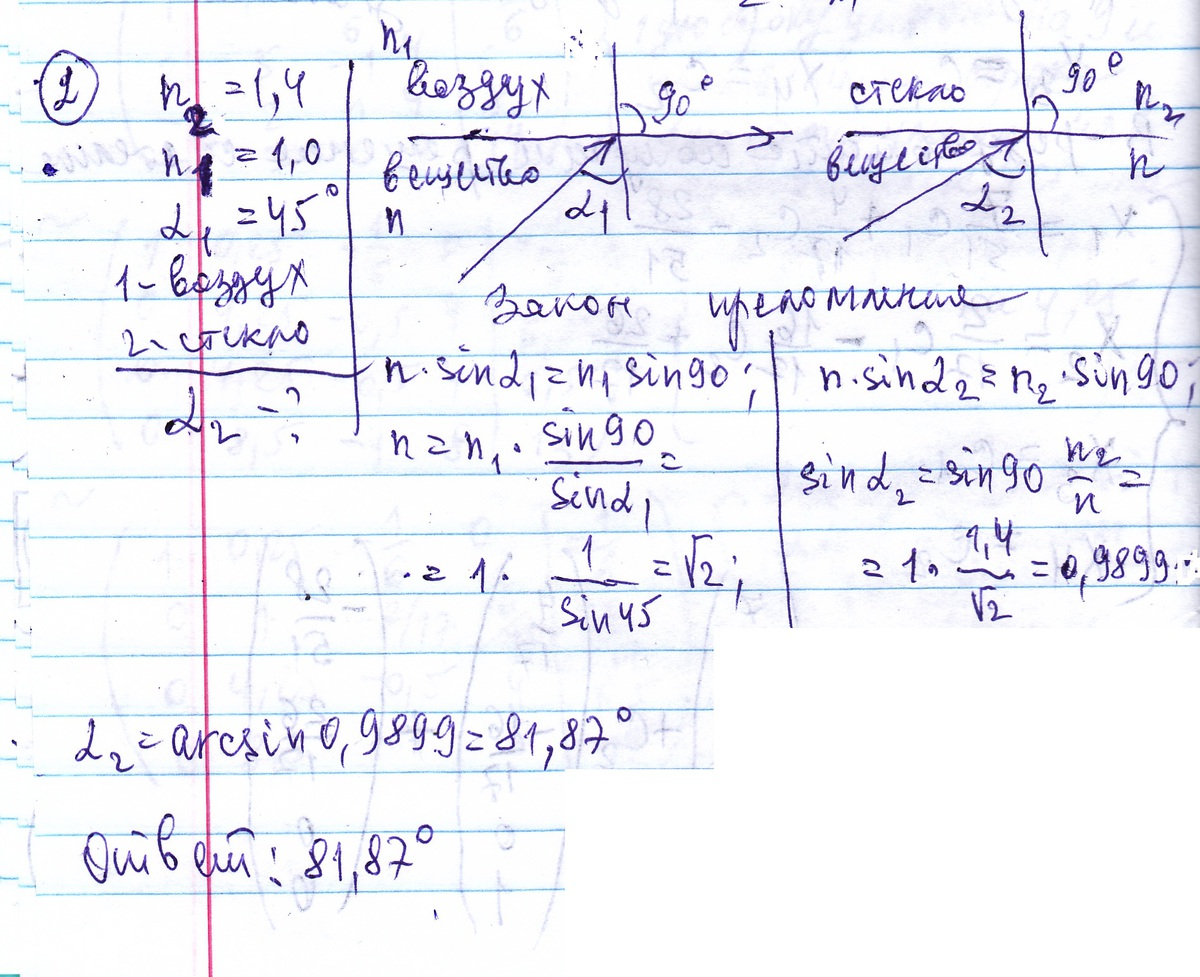 2
n₂ = 1,4
n₁ = 1,0
α₁ = 45°
1 - воздух
2 - стекло
α₂ - ?
n₁
воздух 90°
вещество
n α₁
стекло 90° n₂
вещество n
α₂
Закон преломления
n·sinα₁ = n₁ sin90;
n = n₁ · sin90/sinα₁ =
= 1 · 1/sin45 = √2;
n·sinα₂ = n₂·sin90;
sinα₂ = sin90 n₂/n =
= 1 · 1,4/√2 = 0,9899..
α₂ = arcsin0,9899 = 81,87°
Ответ: 81,87°